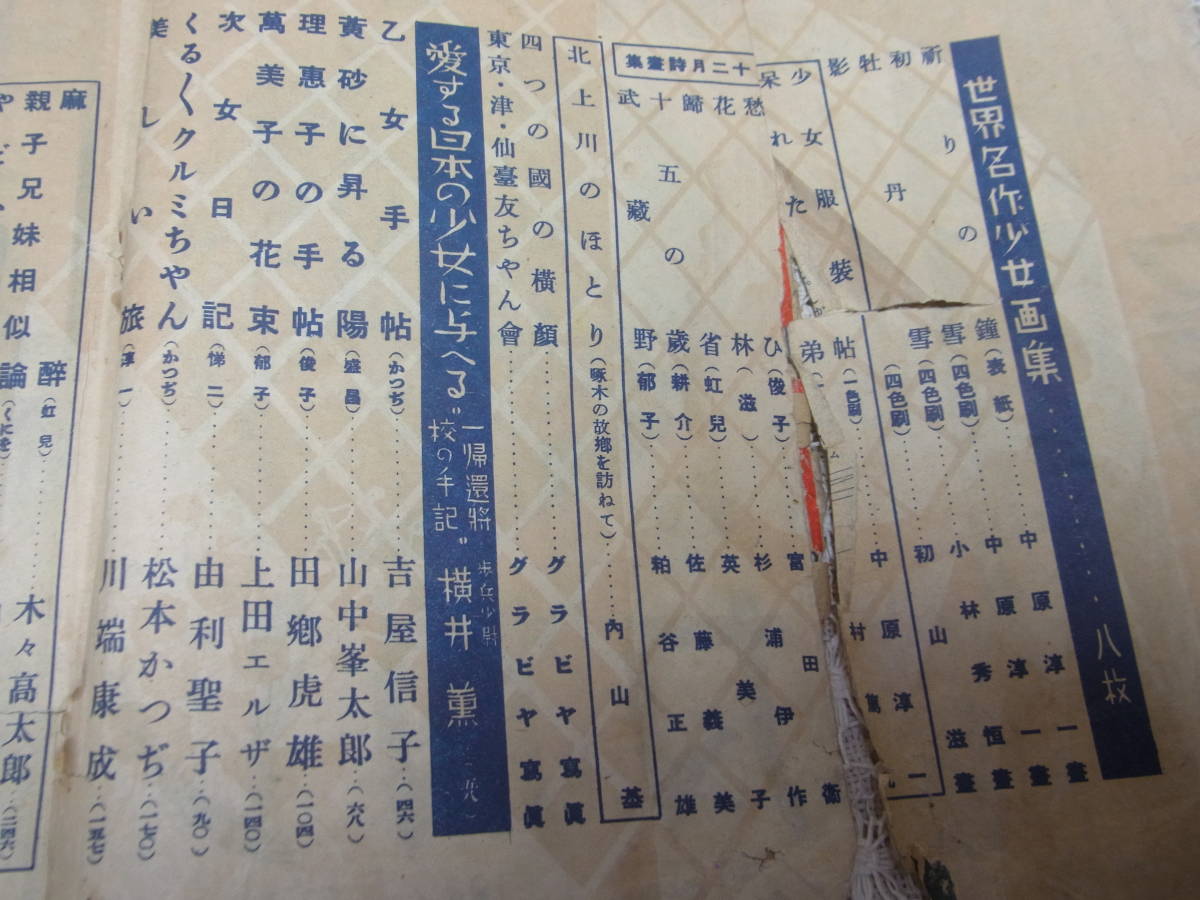 世界名作少女画集‥‥‥‥八枚
祈りの鐘(表紙)‥‥中原淳一畫
初雪(四色刷)‥‥中原淳一畫
牡丹雪(四色刷)‥‥小林秀恒畫
影(四色刷)‥‥初山滋畫
少女服裝帖(一色刷)‥‥中原淳一
呆れた弟
中村
富田衞
十二月詩畫集
愁ひ(俊子)‥‥杉浦伊作
花林(滋)‥‥英美子
歸省(虹兒)‥‥佐藤義美
十五の歲(耕介)‥‥粕谷正雄
武藏野(郁子)
北上川のほとり(啄木の故鄕を訪ねて)‥‥內山基
四つの國の橫顏‥‥グラビヤ寫眞
東京・津・仙臺友ちやん會‥‥グラビヤ寫眞
愛する日本の少女に与へる〝一帰還將校の手記〟 步兵少尉 橫井薫
乙女手帖(かつぢ)‥‥吉屋信子‥(四六)
黃砂に昇る陽(盛昌)‥‥山中峯太郎‥(六八)
理惠子の手帖(俊子)‥‥田鄕虎雄‥(一〇四)
萬美子の花束(郁子)‥‥上田エルザ‥(一四〇)
次女日記(悌二)‥‥由利聖子‥(九〇)
くる〱クルミちやん(かつぢ)‥‥松本かつぢ‥(一七〇)
美しい旅(淳一)‥‥川端康成‥(一五七)
麻醉(虹兒)‥‥木々高太郎‥(二四六)
親子兄妹相似論(くにを)